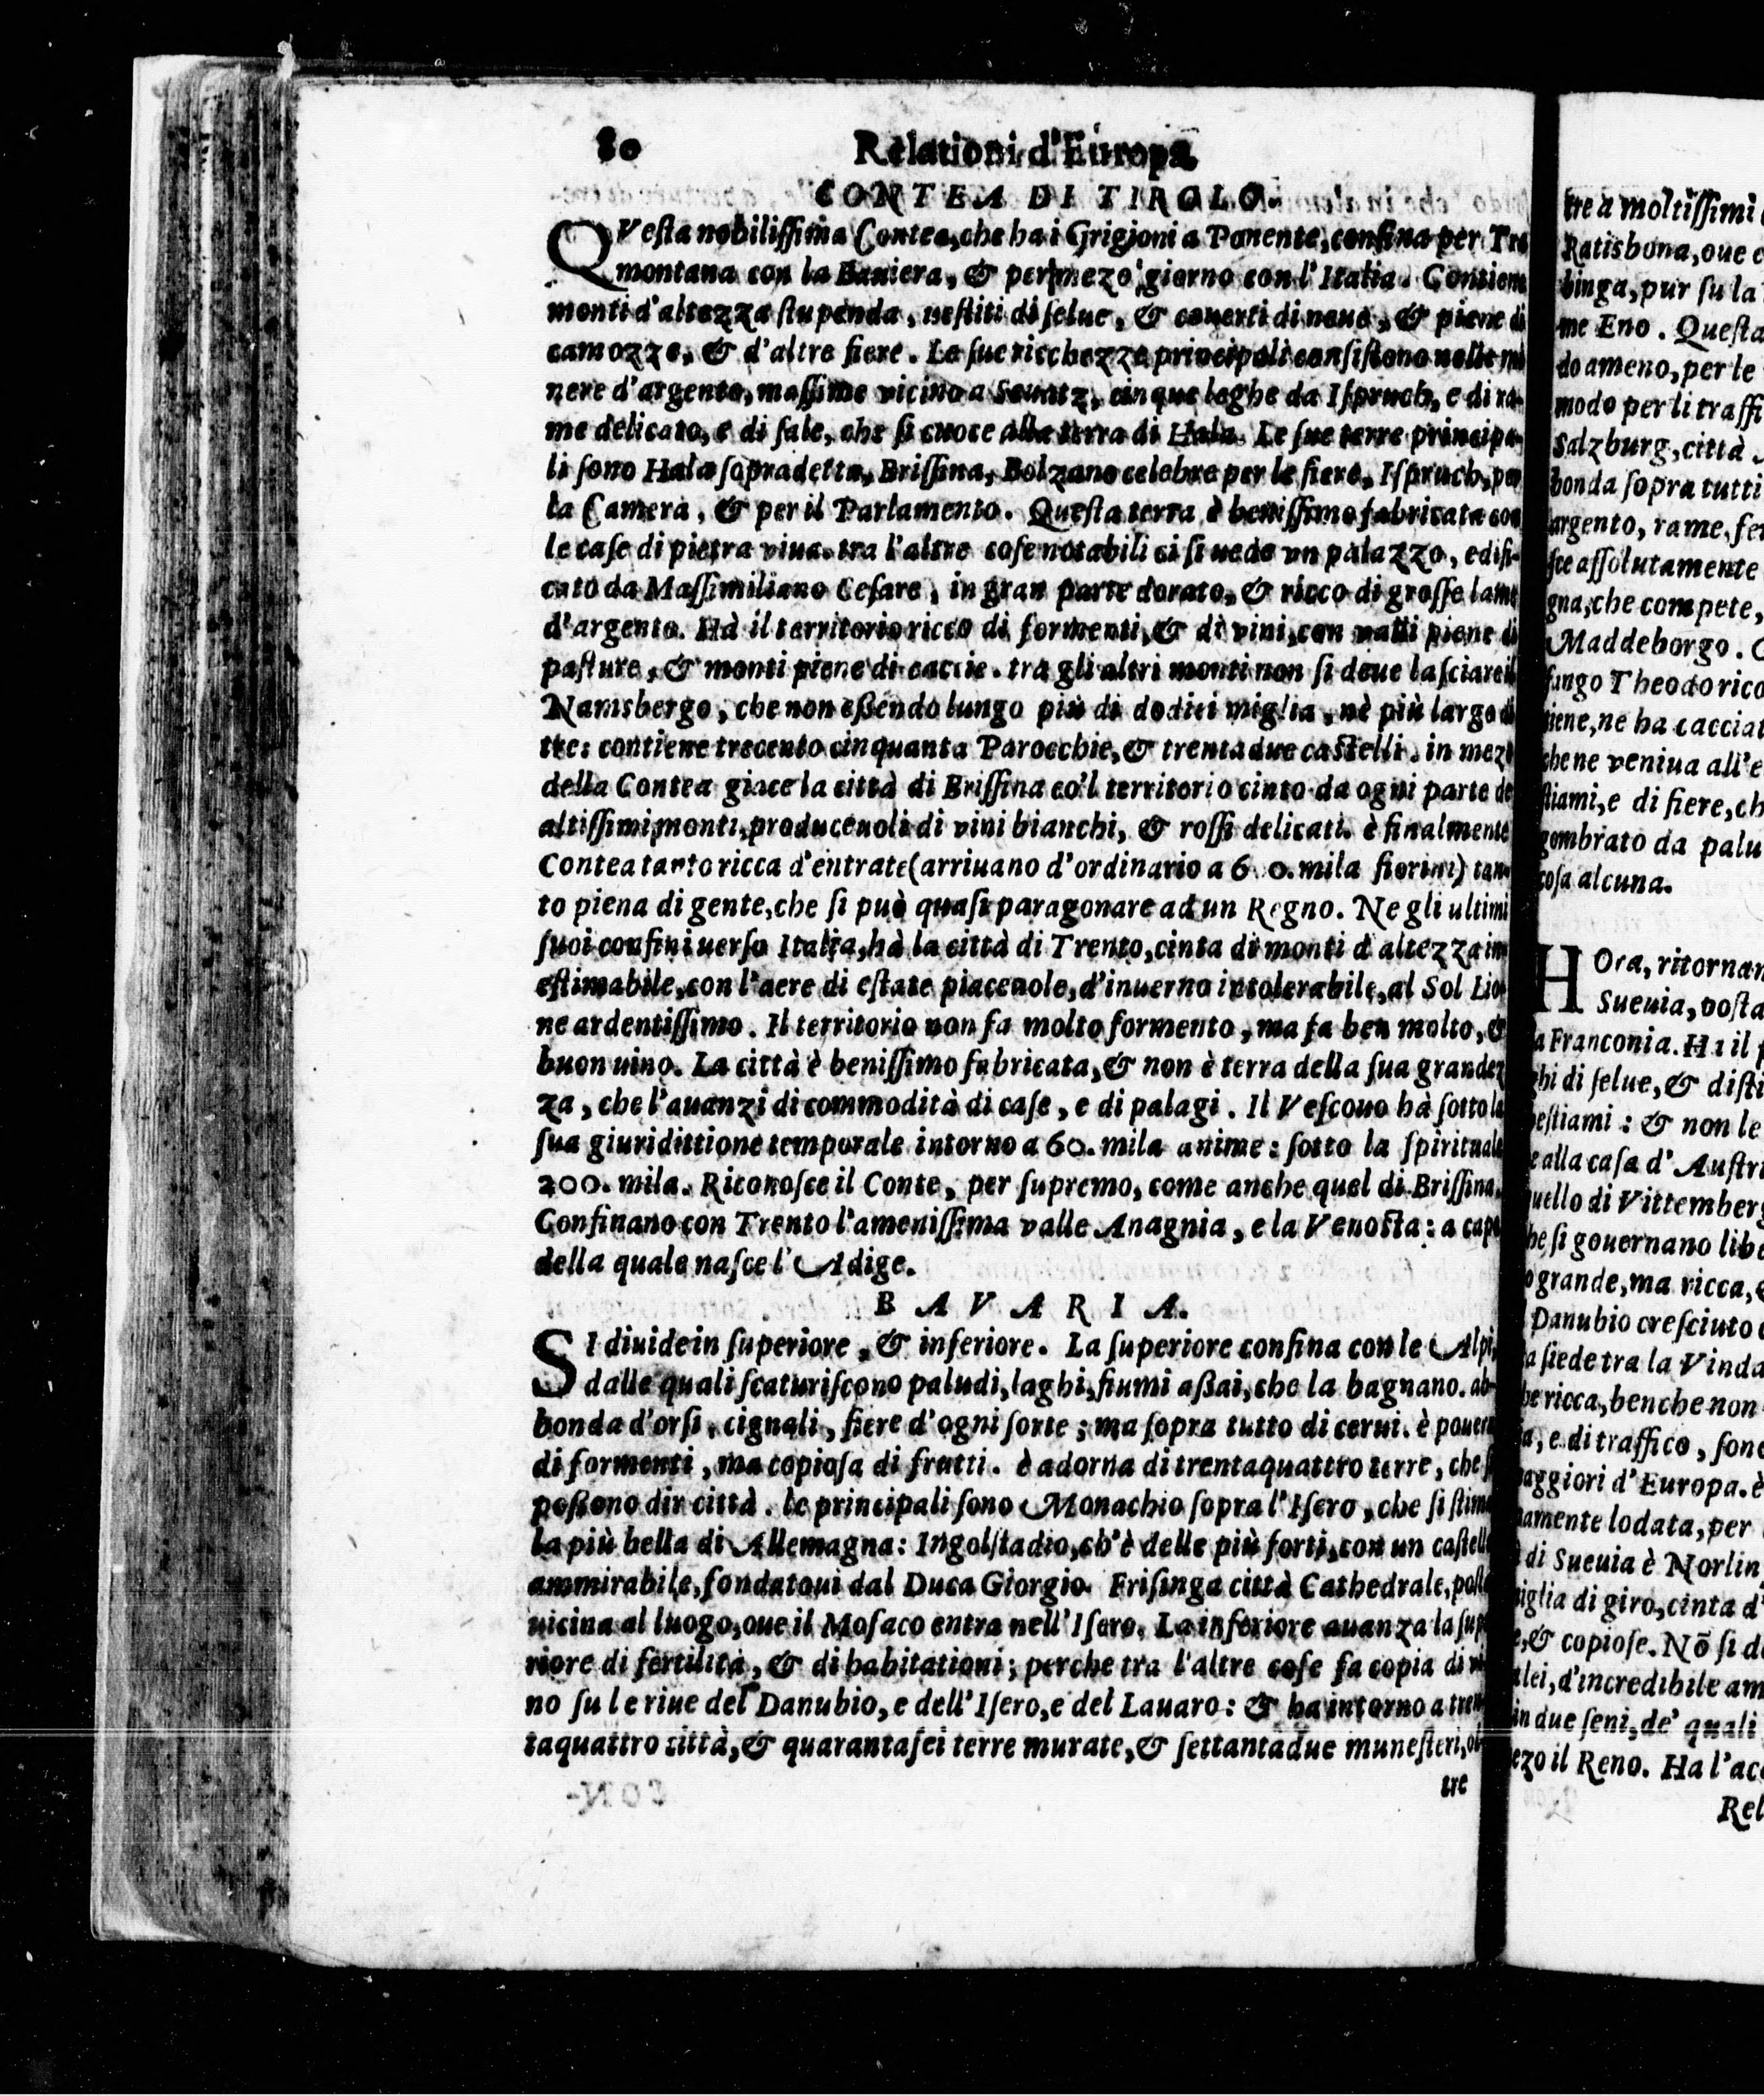 80 Relationi d'Europa
CONTEA DI TIROLO.
QVesta nobilissima Contea, che ha i Grigioni a Ponente, confina per Tra
montana con la Bauiera, & per mezo giorno con l'Italia. Contiene
monti d'altezza stupenda, uestiti di selue, & couerti di neue, & piene di
camozze, & d'altre fiere. Le sue ricchezze principali consistono nelle mi
nere d'argento, massime vicino a Seuatz, cinque leghe da Ispruch, e di ra-
me delicato, e di sale, che si cuoce alla terra di Hala. Le sue terre principa-
li sono Hala sopradetta, Brissina, Bolzano celebre per le fiere, Ispruch, per
la Camera, & per il Parlamento. Questa terra è benissimo fabricata con
le case di pietra viua. tra l'altre cose notabili ci si uede vn palazzo, edifi-
cato da Massimiliano Cesare, in gran parte dorato, & ricco di grosse lame
d'argento. Hà il territorio ricco di formenti, & di vini, con valli piene di
pasture, & monti piene di caccie. tra gli altri monti non si deue lasciare il
Namsbergo, che non essendo lungo più di dodici miglia, nè più largo di
tre: contiene trecento cinquanta Parocchie, & trenta due castelli. in mezo
della Contea giace la città di Brissina co'l territorio cinto da ogni parte de
altissimi monti, produceuoli di vini bianchi, & rossi delicati. è finalmente
Contea tanto ricca d'entrate (arriuano d'ordinario a 6 0. mila fiorini) tan-
to piena di gente, che si può quasi paragonare ad un Regno. Ne gli ultimi
suoi confini uerso Italia, hà la città di Trento, cinta di monti d'altezza in
estimabile, con l'aere di estate piaceuole, d'inuerno intolerabile, al Sol Lio-
ne ardentissimo. Il territorio non fa molto formento, ma fa ben molto, &
buon uino. La città è benissimo fabricata, & non è terra della sua grandez
za, che l'auanzi di commodità di case, e di palagi. Il Vescouo hà sotto la
sua giuridittione temporale intorno a 60. mila anime: sotto la spirituale
200. mila. Riconosce il Conte, per supremo, come anche quel di Brissina.
Confinano con Trento l'amenissima valle Anagnia, e la Venosta: a capo
della quale nasce l'Adige.
BAVARIA.
SI diuide in superiore, & inferiore. La superiore confina con le Alpi,
dalle quali scaturiscono paludi, laghi, fiumi assai, che la bagnano. ab-
bonda d'orsi, cignali, fiere d'ogni sorte; ma sopra tutto di cerui. è pouera
di formenti, ma copiosa di frutti. è adorna di trentaquattro terre, che si
possono dir città. le principali sono Monachio sopra l'Isero, che si stima
la più bella di Allemagna: Ingolstadio, ch'è delle più forti, con un castello
ammirabile, fondatoui dal Duca Giorgio. Frisinga città Cathedrale, posta
uicina al luogo, oue il Mosaco entra nell'Isero. La inferiore auanza la supe
riore di fertilità, & di habitationi; perche tra l'altre cose fa copia di vi
no su le riue del Danubio, e dell'Isero, e del Lauaro: & ha intorno a tren
taquattro città, & quarantasei terre murate, & settantadue munesteri, ol-
tre
tre a moltissimi
Ratisbona, oue
binga, pur su la
me Eno. Questa
do ameno, per le
modo per li traffi
Salzburg, città
bonda sopra tutti
argento, rame, fer
sce assolutamente
gna, che compete,
Maddeborgo.
fango Theodorico
tiene, ne ha cacciat
che ne veniua all'e
stiami, e di fiere, ch
gombrato da palu
cosa alcuna.
HOra, ritornan
Sueuia, posta
la Franconia. Ha il
ghi di selue, & disti
bestiami: & non le
e alla casa d'Austri
quello di Vittemberg
che si gouernano libe
o grande, ma ricca, &
Danubio cresciuto
ta siede tra la Vinda
he ricca, benche non
ia, e di traffico, sono
maggiori d'Europa. è
mamente lodata, per
di Sueuia è Norlin
miglia di giro, cinta d'
e, & copiose. Nõ si de
lei, d'incredibile am
in due seni, de' quali
mezo il Reno. Ha l'acq
Rel